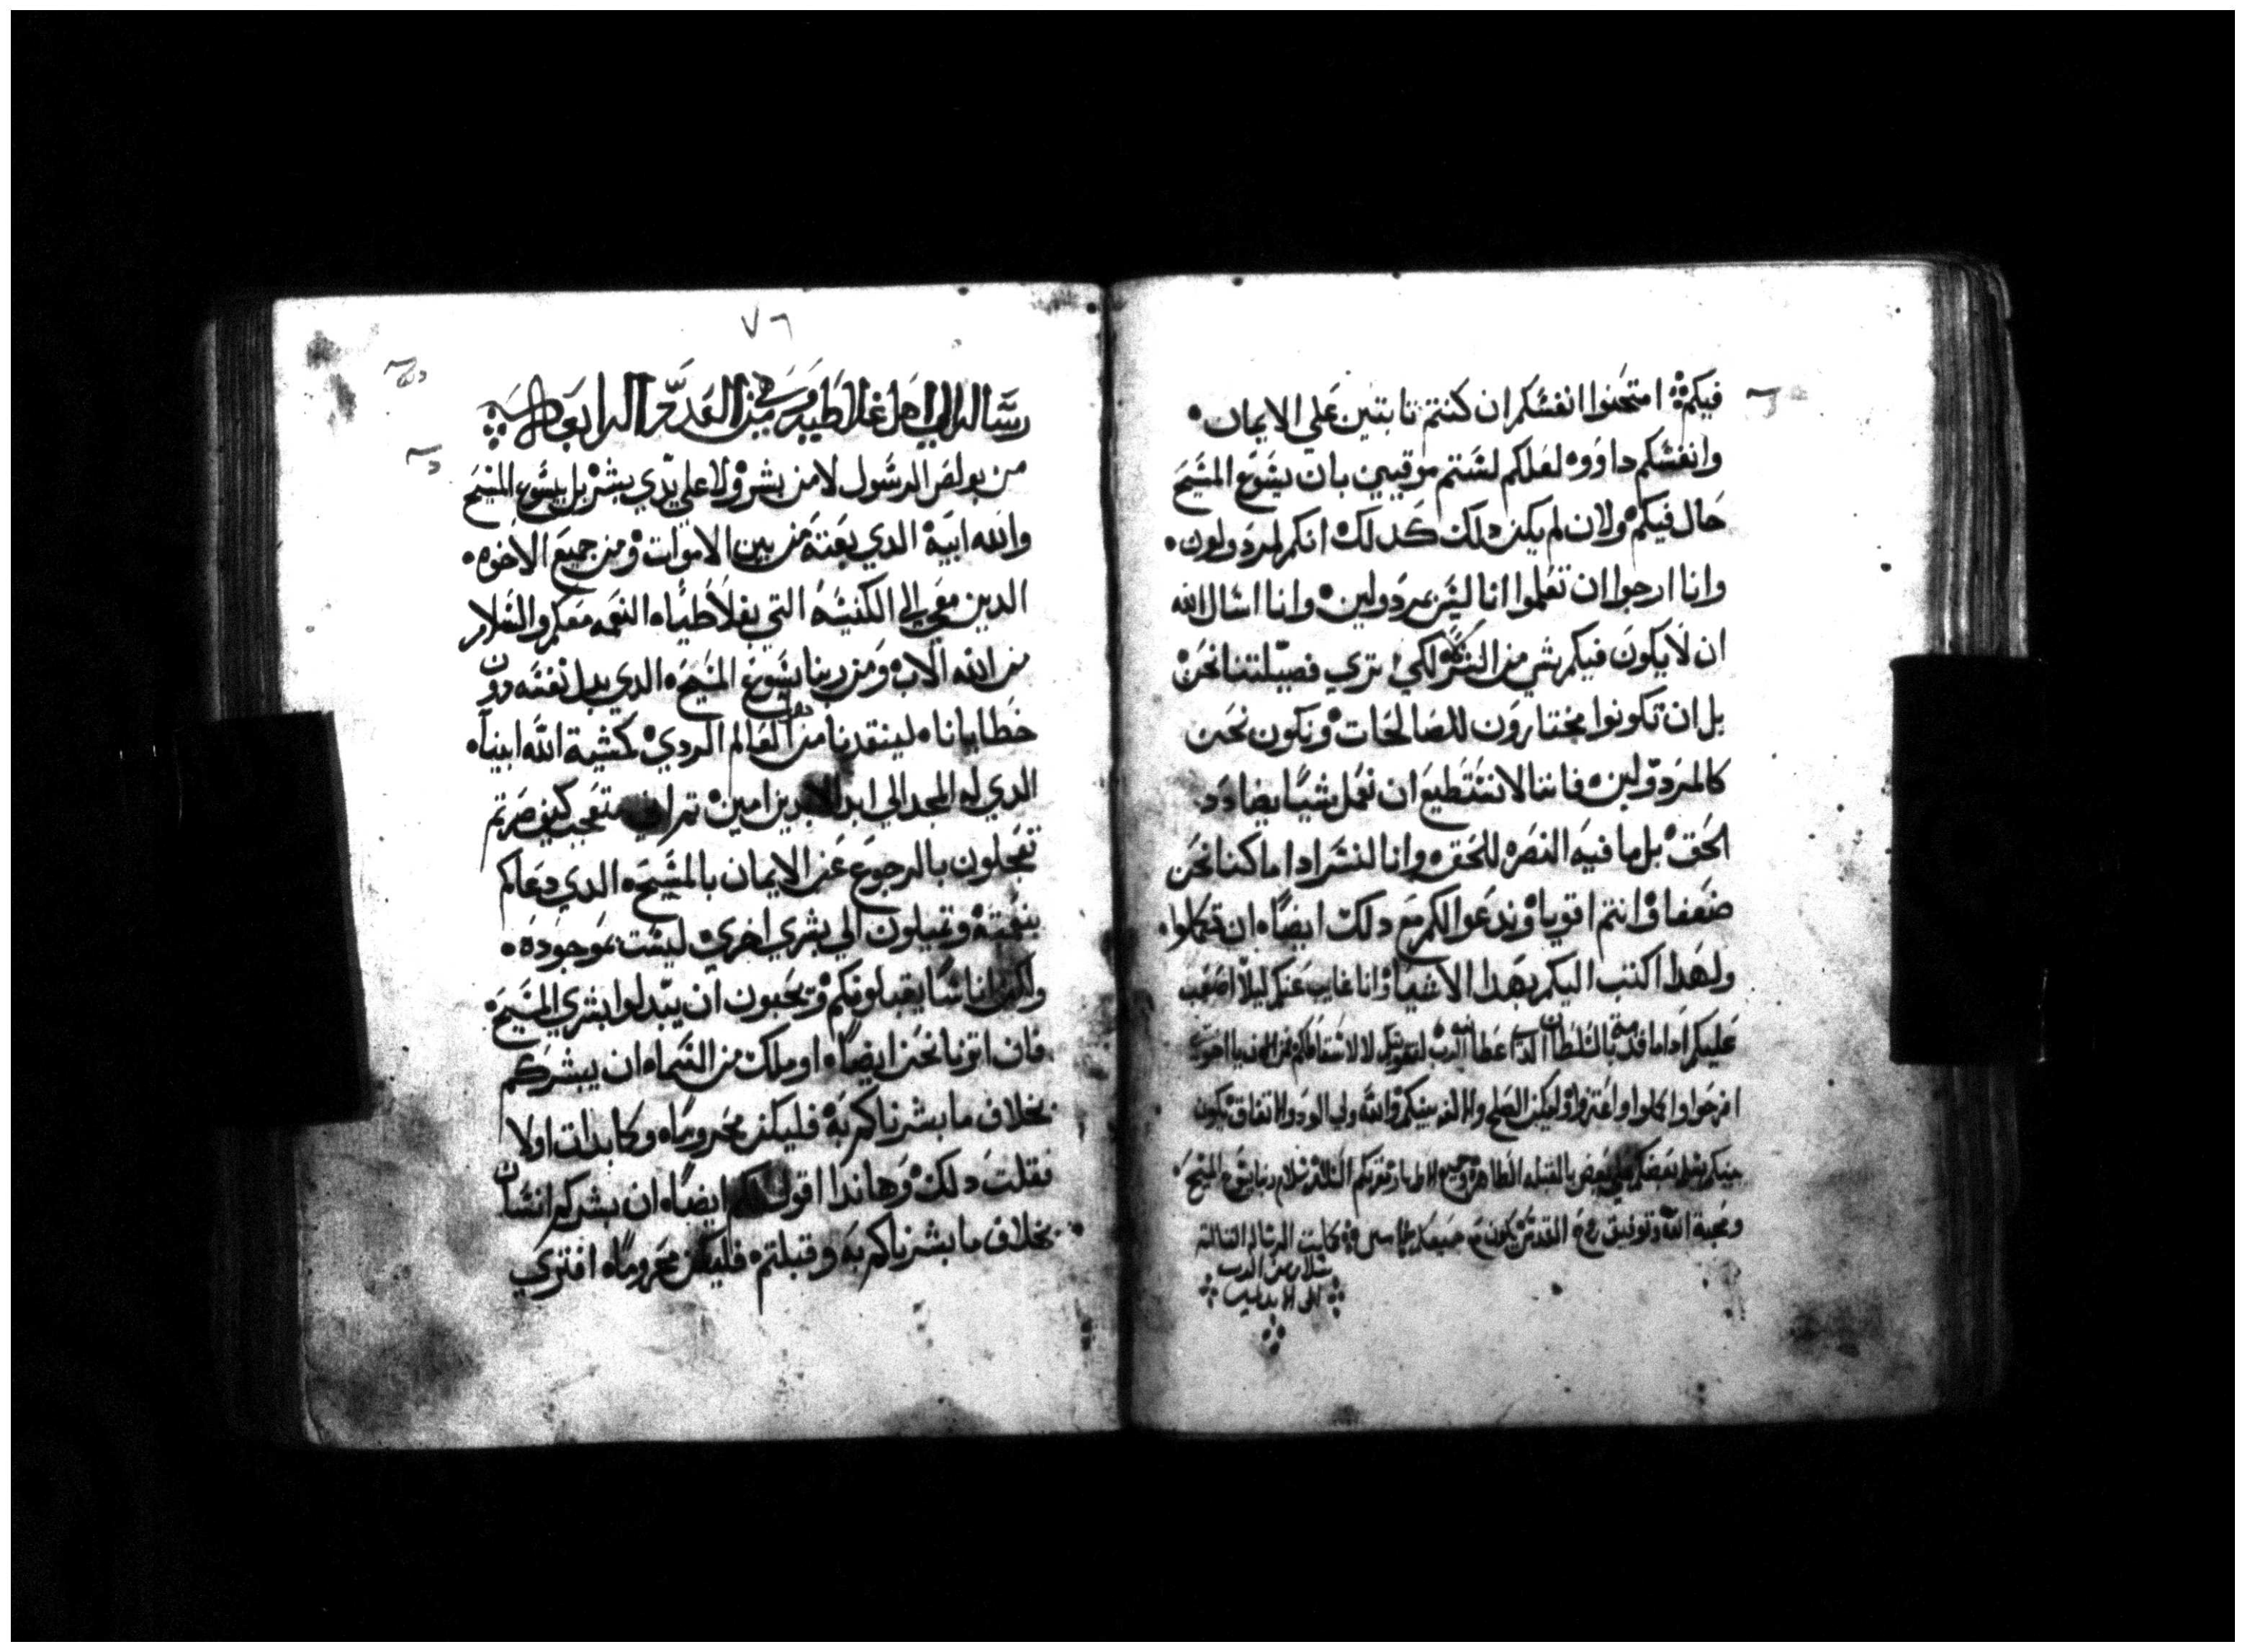 فيكم امتحنوا انفسكم ان كنتم تابتين علي الايمان
وانفسكم داووه لعلكم لستم موقنين بان يسوع المسيح
حال فيكم ولان لم يكن دلك كدلك انكم لمردولون
وانا ارجوا ان تعلموا انا ليس بمردولين وانا اسال الله
ان لا يكون فيكم شي من الشر لكي تري فضيلتنا نحن
بل ان تكونوا مختارون للصالحات ونكون نحن
كالمردولين فاننا لا نستطيع ان نعمل شيا يضادد
الحق بل ما فيه النصره للحق وانا لنسر ادا ما كنا نحن
ضعفا وانتم اقويا وندعوا لكم مع دلك ايضاه ان تكملوا
ولهدا اكتب اليكم بهدا الاشيا وانا غايب عنكم ليلا اصعب
عليكم ادا ما قدمت بالسلطان اعطا الرب
افرحوا واكملوا واعتزوا وليكن الصلح والالفه بينكم والله ولي الود والاتفاق يكون
بينكم بعضكم علي بعض بالقبله الطاهره جميع الاطهار يقروكم السلام ربنا يسوع المسيح
ومحبة الله وتوفيق روح القدس يكون مع جميعكم كملت الرساله التالته
بسلام من الرب
٧٦
رساله الي اهل غلاطيه وهي من العدد الرابعه
من بولص الرسول لا من بشر ولا علي يدي بشر بل بيسوع المسيح
والله ابيه الدي بعته من بين الاموات ومن جميع الاخوه
الدين معي الي الكنيسه التي بغلاطياه النعمه معكم والسلام
من الله الاب ومن ربنا يسوع المسيح الدي بدل نفسه دون
خطايانا لينقدنا من العالم الردي كمشية الله ابينا
الدي له المجد الي ابد الابدين امين متعجب كيف صرتم
تعجلون بالرجوع عن الايمان بالمسيح الدي دعاكم
بنعمته وتميلون الي بشري اخري ليست بموجوده
ولكن اناسا يقبلونكم ويحبون ان يبدلوا بشري المسيح
فان اتونا نحن ايضاه او ملك من السماه ان يبشركم
بخلاف ما بشرناكم به فليكن محروماه وكما بدات اولا
فقلت دلك وهاندا اقول لكم ايضاه ان بشركم انسان
بخلاف ما بشرناكم به وقبلتم فليكن محروماه افتري